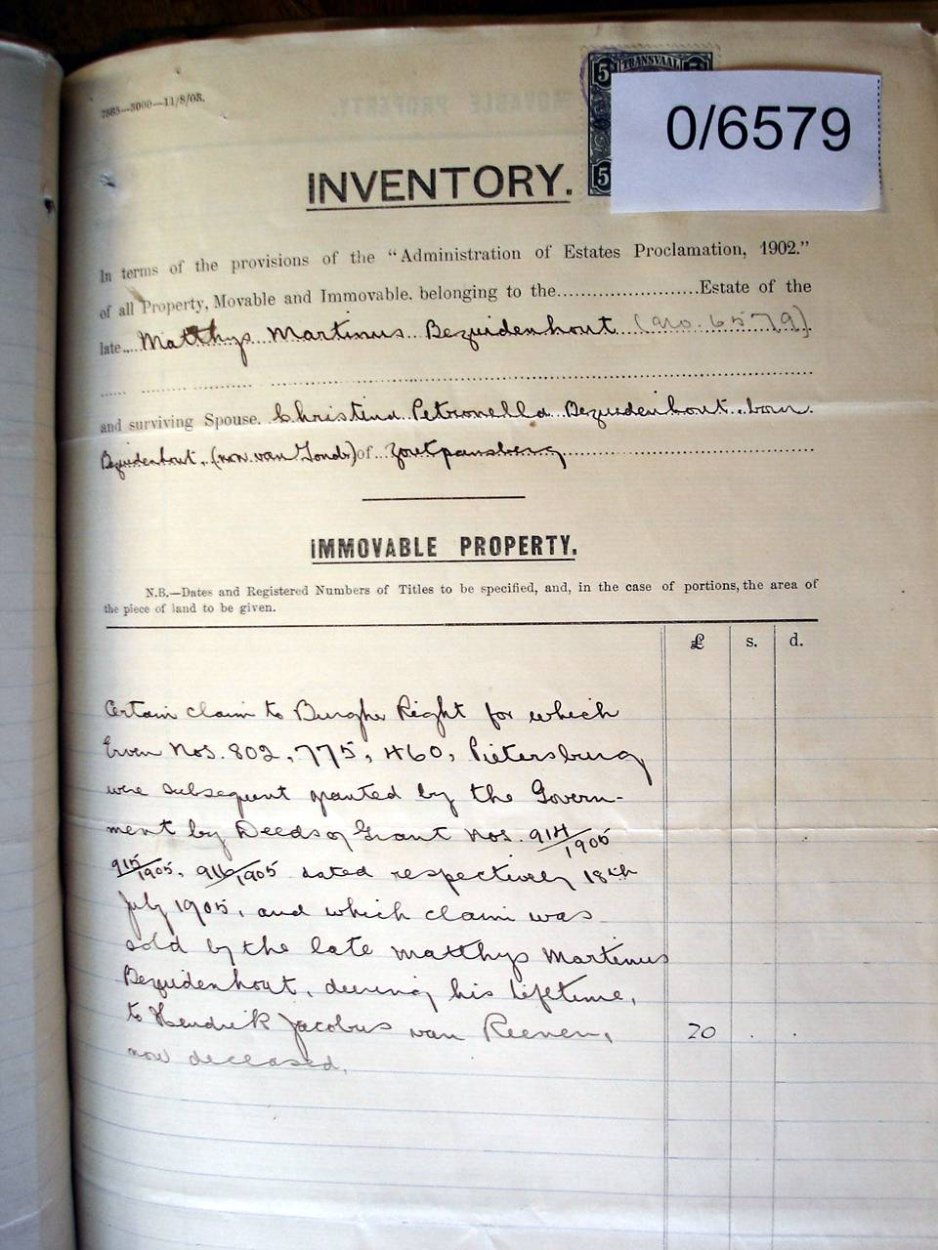 7885—3000—11/8/03.
TRANSVAAL
5
5
0/6579
INVENTORY.
In terms of the provisions of the "Administration of Estates Proclamation, 1902."
of all Property, Movable and Immovable, belonging to the......................Estate of the
late....Matthys Martinus Bezuidenhout (No. 6579).
and surviving Spouse. Christina Petronella Bezuidenhout born
Bezuidenhout, (now van of Zoutpansberg
IMMOVABLE PROPERTY.
N.B.—Dates and Registered Numbers of Titles to be specified, and, in the case of portions, the area of
the piece of land to be given.
£ s. d.
Certain claim to Burgher Right for which
Erven Nos. 802, 775, 460, Pietersburg
were subsequent granted by the Govern-
ment by Deeds of Grant Nos. 914/1905
915/1905, 916/1905 dated respectively 18th
July 1905, and which claim was
sold by the late Matthys Martinus
Bezuidenhout, during his lifetime,
to Hendrik Jacobus van Reenen, 20 . .
now deceased.